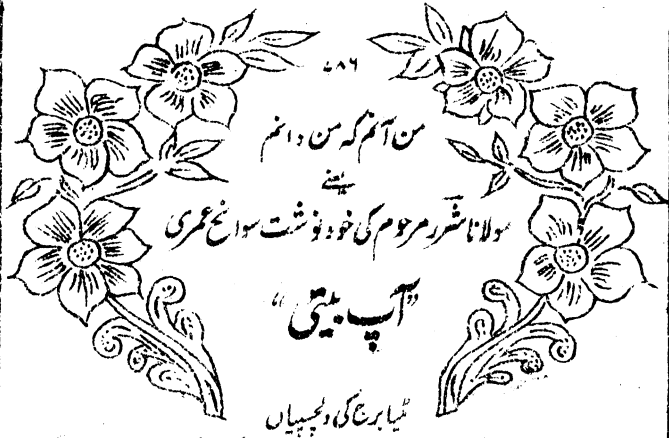 ۷۸۶
من آنم کہ من دانم
یعنے
مولانا شرر مرحوم کی خود نوشت سوانح عمری
”آپ بیتی“
مٹیا برج کی دلچسپیاں